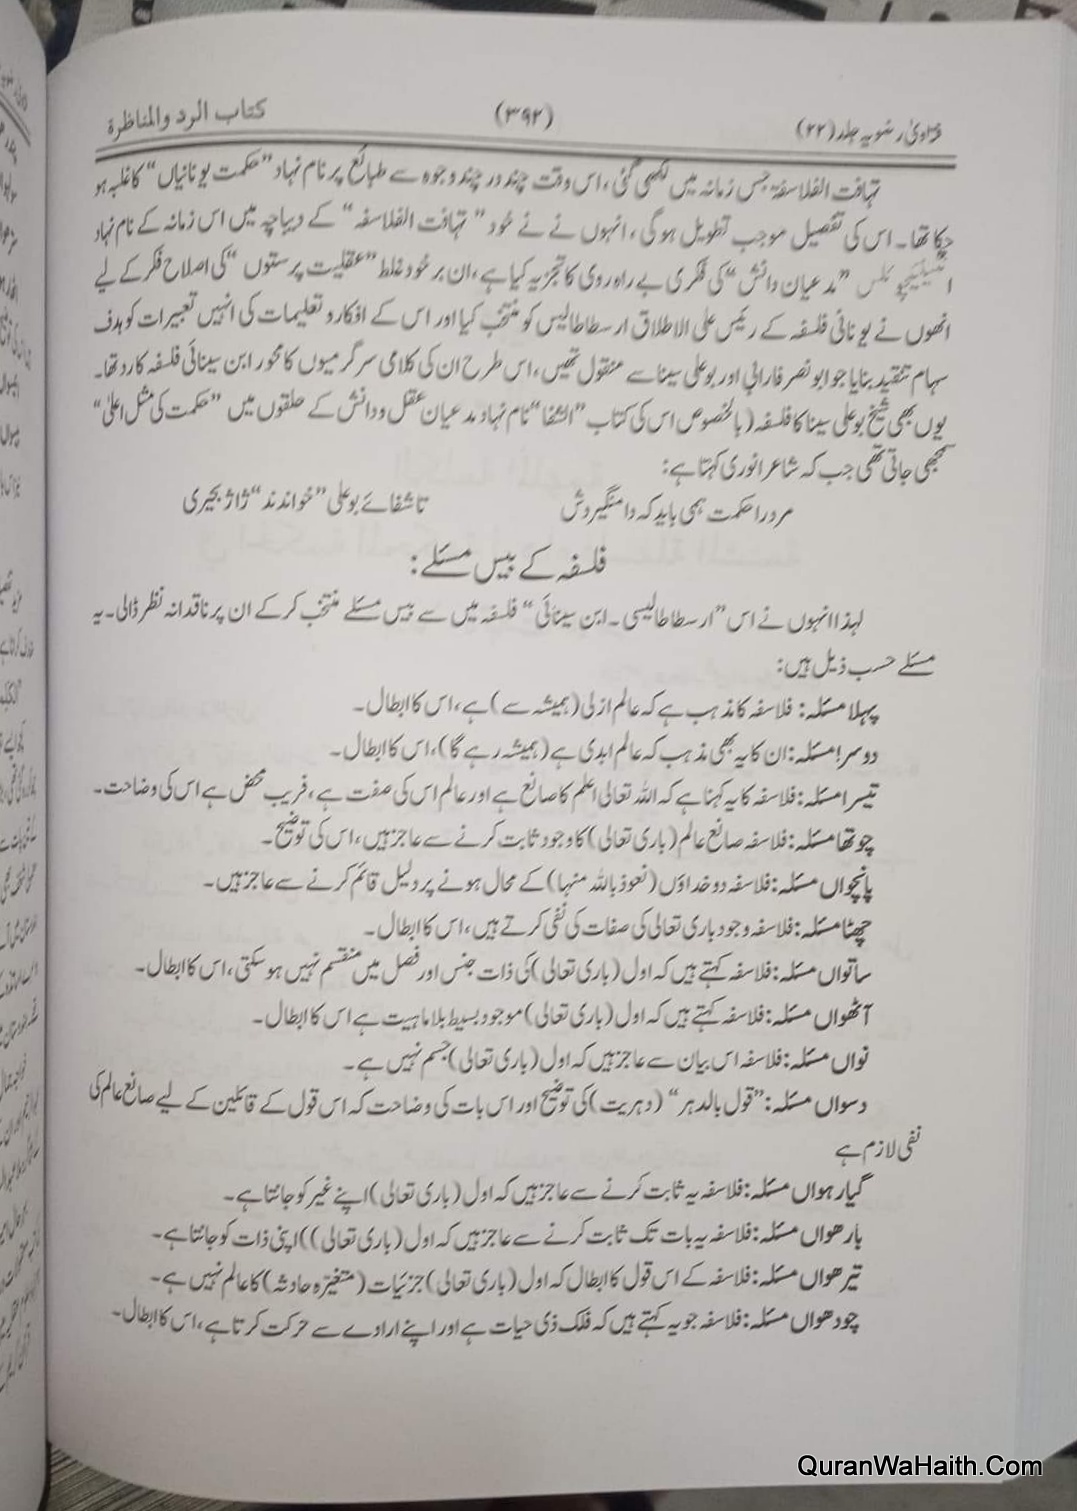 فتاویٰ رضویہ جلد (۲۲) (۳۹۲) کتاب الرد والمناظرة
تہافت الفلاسفۃ جس زمانہ میں لکھی گئی، اس وقت چند در چند وجوہ سے طبائع پر نام نہاد ”حکمت یونانیاں“ کا غلبہ ہو
چکا تھا۔ اس کی تفصیل موجب تطویل ہوگی، انہوں نے نے خود ”تہافت الفلاسفہ“ کے دیباچہ میں اس زمانہ کے نام نہاد
انٹیلیکچوئلس ”مدعیان دانش“ کی فکری بے راہ روی کا تجزیہ کیا ہے، ان بر خود غلط ”عقلیت پرستوں“ کی اصلاح فکر کے لیے
انھوں نے یونانی فلسفہ کے رئیس علی الاطلاق ارسطاطالیس کو منتخب کیا اور اس کے افکار و تعلیمات کی انہیں تعبیرات کو ہدف
سہام تنقید بنایا جو ابو نصر فارابی اور بو علی سینا سے منقول تھیں، اس طرح ان کی کلامی سرگرمیوں کا محور ابن سینائی فلسفہ کا رد تھا۔
یوں بھی شیخ بو علی سینا کا فلسفہ (بالخصوص اس کی کتاب ”الشفا“ نام نہاد مدعیان عقل و دانش کے حلقوں میں ”حکمت کی مثل اعلیٰ“
سمجھی جاتی تھی جب کہ شاعر انوری کہتا ہے:
مرد را حکمت ہمی باید کہ دامنگیردش تا شفائے بو علی ”خواندند“ ژاژ بحیری
فلسفہ کے بیس مسئلے:
لہذا انہوں نے اس ”ارسطاطالیسی۔ ابن سینائی“ فلسفہ میں سے بیس مسئلے منتخب کر کے ان پر ناقدانہ نظر ڈالی۔ یہ
مسئلے حسب ذیل ہیں:
پہلا مسئلہ: فلاسفہ کا مذہب ہے کہ عالم ازلی (ہمیشہ سے) ہے، اس کا ابطال۔
دوسرا مسئلہ: ان کا یہ بھی مذہب کہ عالم ابدی ہے (ہمیشہ رہے گا)، اس کا ابطال۔
تیسرا مسئلہ: فلاسفہ کا یہ کہنا ہے کہ اللہ تعالی اعلم کا صانع ہے اور عالم اس کی صفت ہے، فریب محض ہے اس کی وضاحت۔
چوتھا مسئلہ: فلاسفہ صانع عالم (باری تعالی) کا وجود ثابت کرنے سے عاجز ہیں، اس کی توضیح۔
پانچواں مسئلہ: فلاسفہ دو خداؤں (نعوذ باللہ منہا) کے محال ہونے پر دلیل قائم کرنے سے عاجز ہیں۔
چھٹا مسئلہ: فلاسفہ وجود باری تعالی کی صفات کی نفی کرتے ہیں، اس کا ابطال۔
ساتواں مسئلہ: فلاسفہ کہتے ہیں کہ اول (باری تعالی) کی ذات جنس اور فصل میں منقسم نہیں ہو سکتی، اس کا ابطال۔
آٹھواں مسئلہ: فلاسفہ کہتے ہیں کہ اول (باری تعالی) موجود بسیط بلا ماہیت ہے اس کا ابطال۔
نواں مسئلہ: فلاسفہ اس بیان سے عاجز ہیں کہ اول (باری تعالی) جسم نہیں ہے۔
دسواں مسئلہ: ”قول بالدہر“ (دہریت) کی توضیح اور اس بات کی وضاحت کہ اس قول کے قائلین کے لیے صانع عالم کی
نفی لازم ہے
گیارہواں مسئلہ: فلاسفہ یہ ثابت کرنے سے عاجز ہیں کہ اول (باری تعالی) اپنے غیر کو جانتا ہے۔
بارھواں مسئلہ: فلاسفہ یہ بات تک ثابت کرنے سے عاجز ہیں کہ اول (باری تعالی)) اپنی ذات کو جانتا ہے۔
تیرھواں مسئلہ: فلاسفہ کے اس قول کا ابطال کہ اول (باری تعالی) جزئیات (متغیرہ حادثہ) کا عالم نہیں ہے۔
چودھواں مسئلہ: فلاسفہ جو یہ کہتے ہیں کہ فلک ذی حیات ہے اور اپنے ارادے سے حرکت کرتا ہے، اس کا ابطال۔
QuranWaHaith.Com